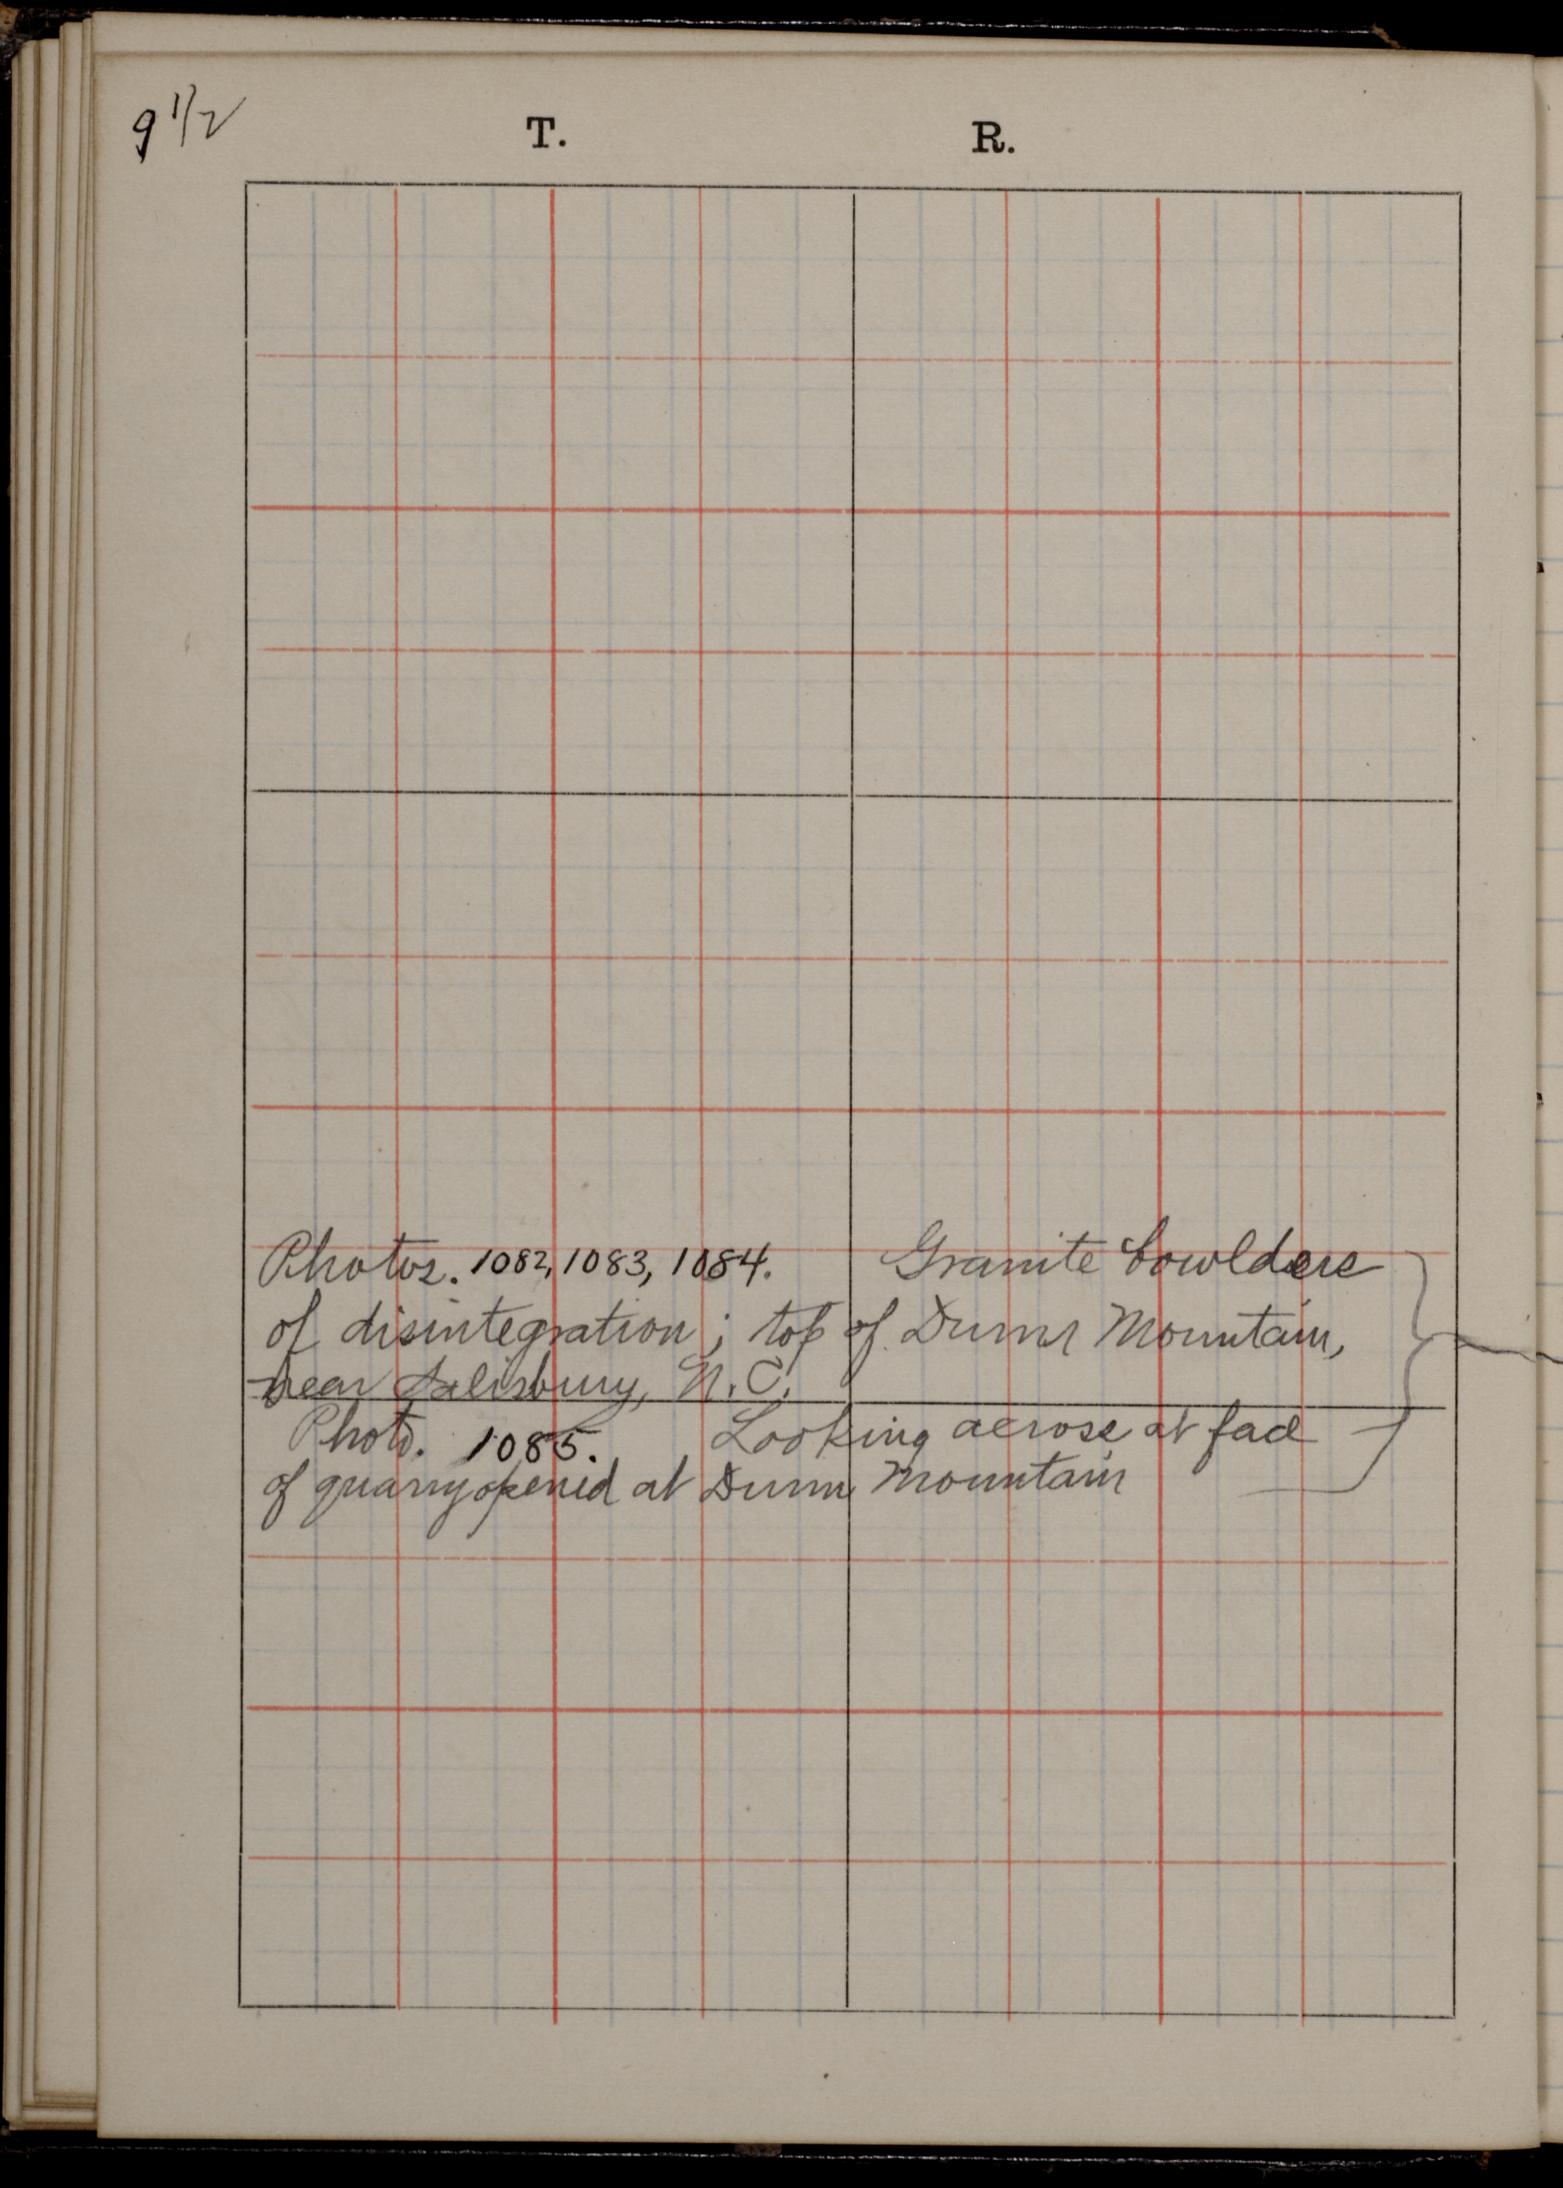 9 1/2
T. R.
Photos. 1082, 1083, 1084. Granite bowlders
of disintegration; top of Dunn Mountain,
near Salisbury, N.C.
Photo. 1085. Looking across at face
of quarry opened at Dunn Mountain